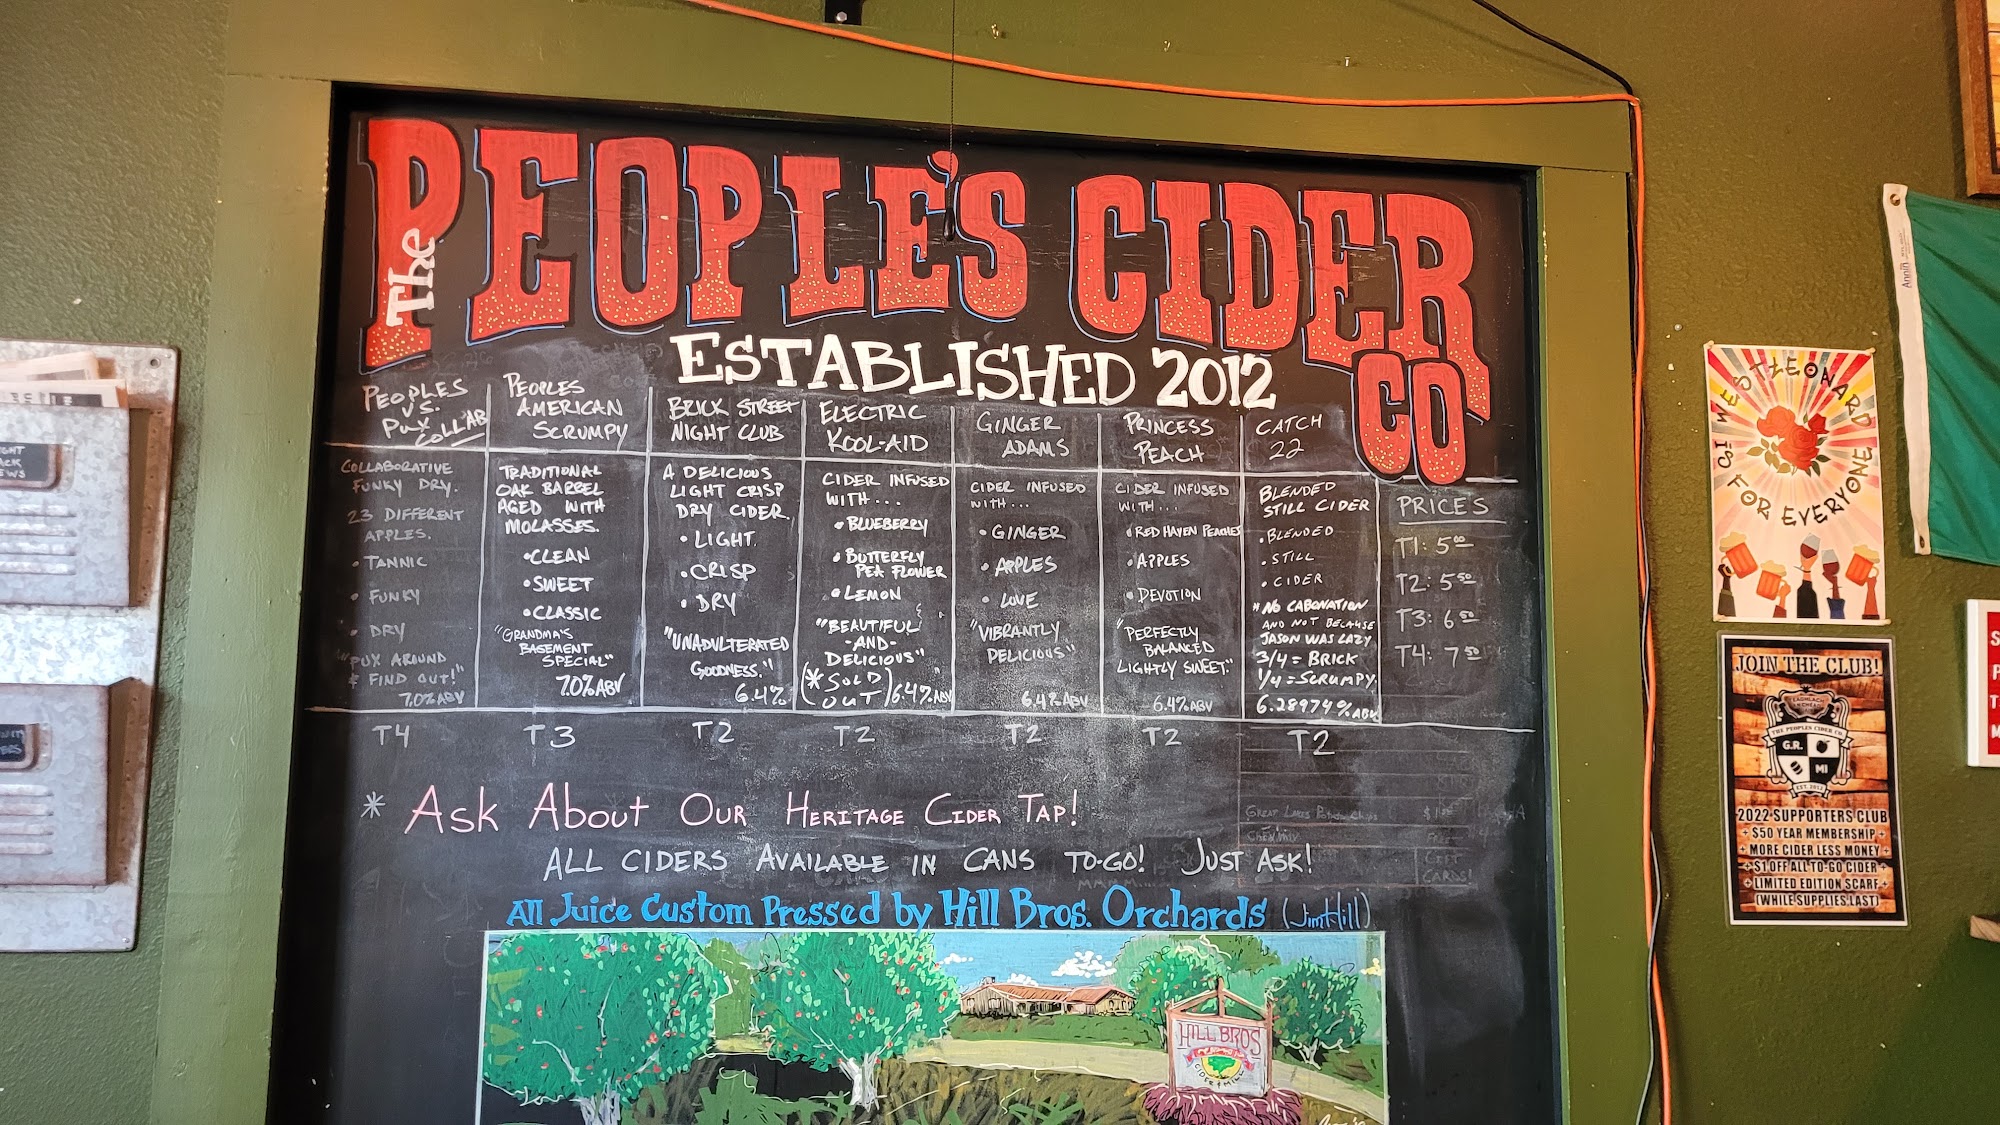 The
PEOPLE'S CIDER
CO
ESTABLISHED 2012
PEOPLES
VS.
PUX
COLLAB
COLLABORATIVE
FUNKY DRY.
23 DIFFERENT
APPLES.
• TANNIC
• FUNKY
• DRY
"PUX AROUND
& FIND OUT!"
7.0% ABV
T4
PEOPLES
AMERICAN
SCRUMPY
TRADITIONAL
OAK BARREL
AGED WITH
MOLASSES.
• CLEAN
• SWEET
• CLASSIC
"GRANDMA'S
BASEMENT
SPECIAL"
7.0% ABV
T3
BRICK STREET
NIGHT CLUB
A DELICIOUS
LIGHT CRISP
DRY CIDER.
• LIGHT
• CRISP
• DRY
"UNADULTERATED
GOODNESS."
6.4%
T2
ELECTRIC
KOOL-AID
CIDER INFUSED
WITH...
• BLUEBERRY
• BUTTERFLY
PEA FLOWER
• LEMON
"BEAUTIFUL
-AND-
DELICIOUS"
(* SOLD
OUT) 6.4% ABV
T2
GINGER
ADAMS
CIDER INFUSED
WITH...
• GINGER
• APPLES
• LOVE
"VIBRANTLY
DELICIOUS"
6.4% ABV
T2
PRINCESS
PEACH
CIDER INFUSED
WITH...
• RED HAVEN PEACHES
• APPLES
• DEVOTION
"PERFECTLY
BALANCED
LIGHTLY SWEET."
6.4% ABV
T2
CATCH
22
BLENDED
STILL CIDER
• BLENDED
• STILL
• CIDER
* NO CABONATION
AND NOT BECAUSE
JASON WAS LAZY
3/4 = BRICK
1/4 = SCRUMPY.
6.28974% ABV
T2
PRICES
T1: 5.00
T2: 5.50
T3: 6.50
T4: 7.50
* ASK ABOUT OUR HERITAGE CIDER TAP!
ALL CIDERS AVAILABLE IN CANS TO-GO! JUST ASK!
All Juice Custom Pressed by Hill Bros. Orchards (Jim Hill)
HILL BROS
CIDER MILL
WESTLEONARD
IS
FOR EVERYONE
JOIN THE CLUB!
THE PEOPLES CIDER CO.
G.R.
MI
EST. 2012
2022 SUPPORTERS CLUB
+ $50 YEAR MEMBERSHIP +
+ MORE CIDER LESS MONEY +
+ $1 OFF ALL TO-GO CIDER +
+ LIMITED EDITION SCARF +
(WHILE SUPPLIES LAST)
Annin